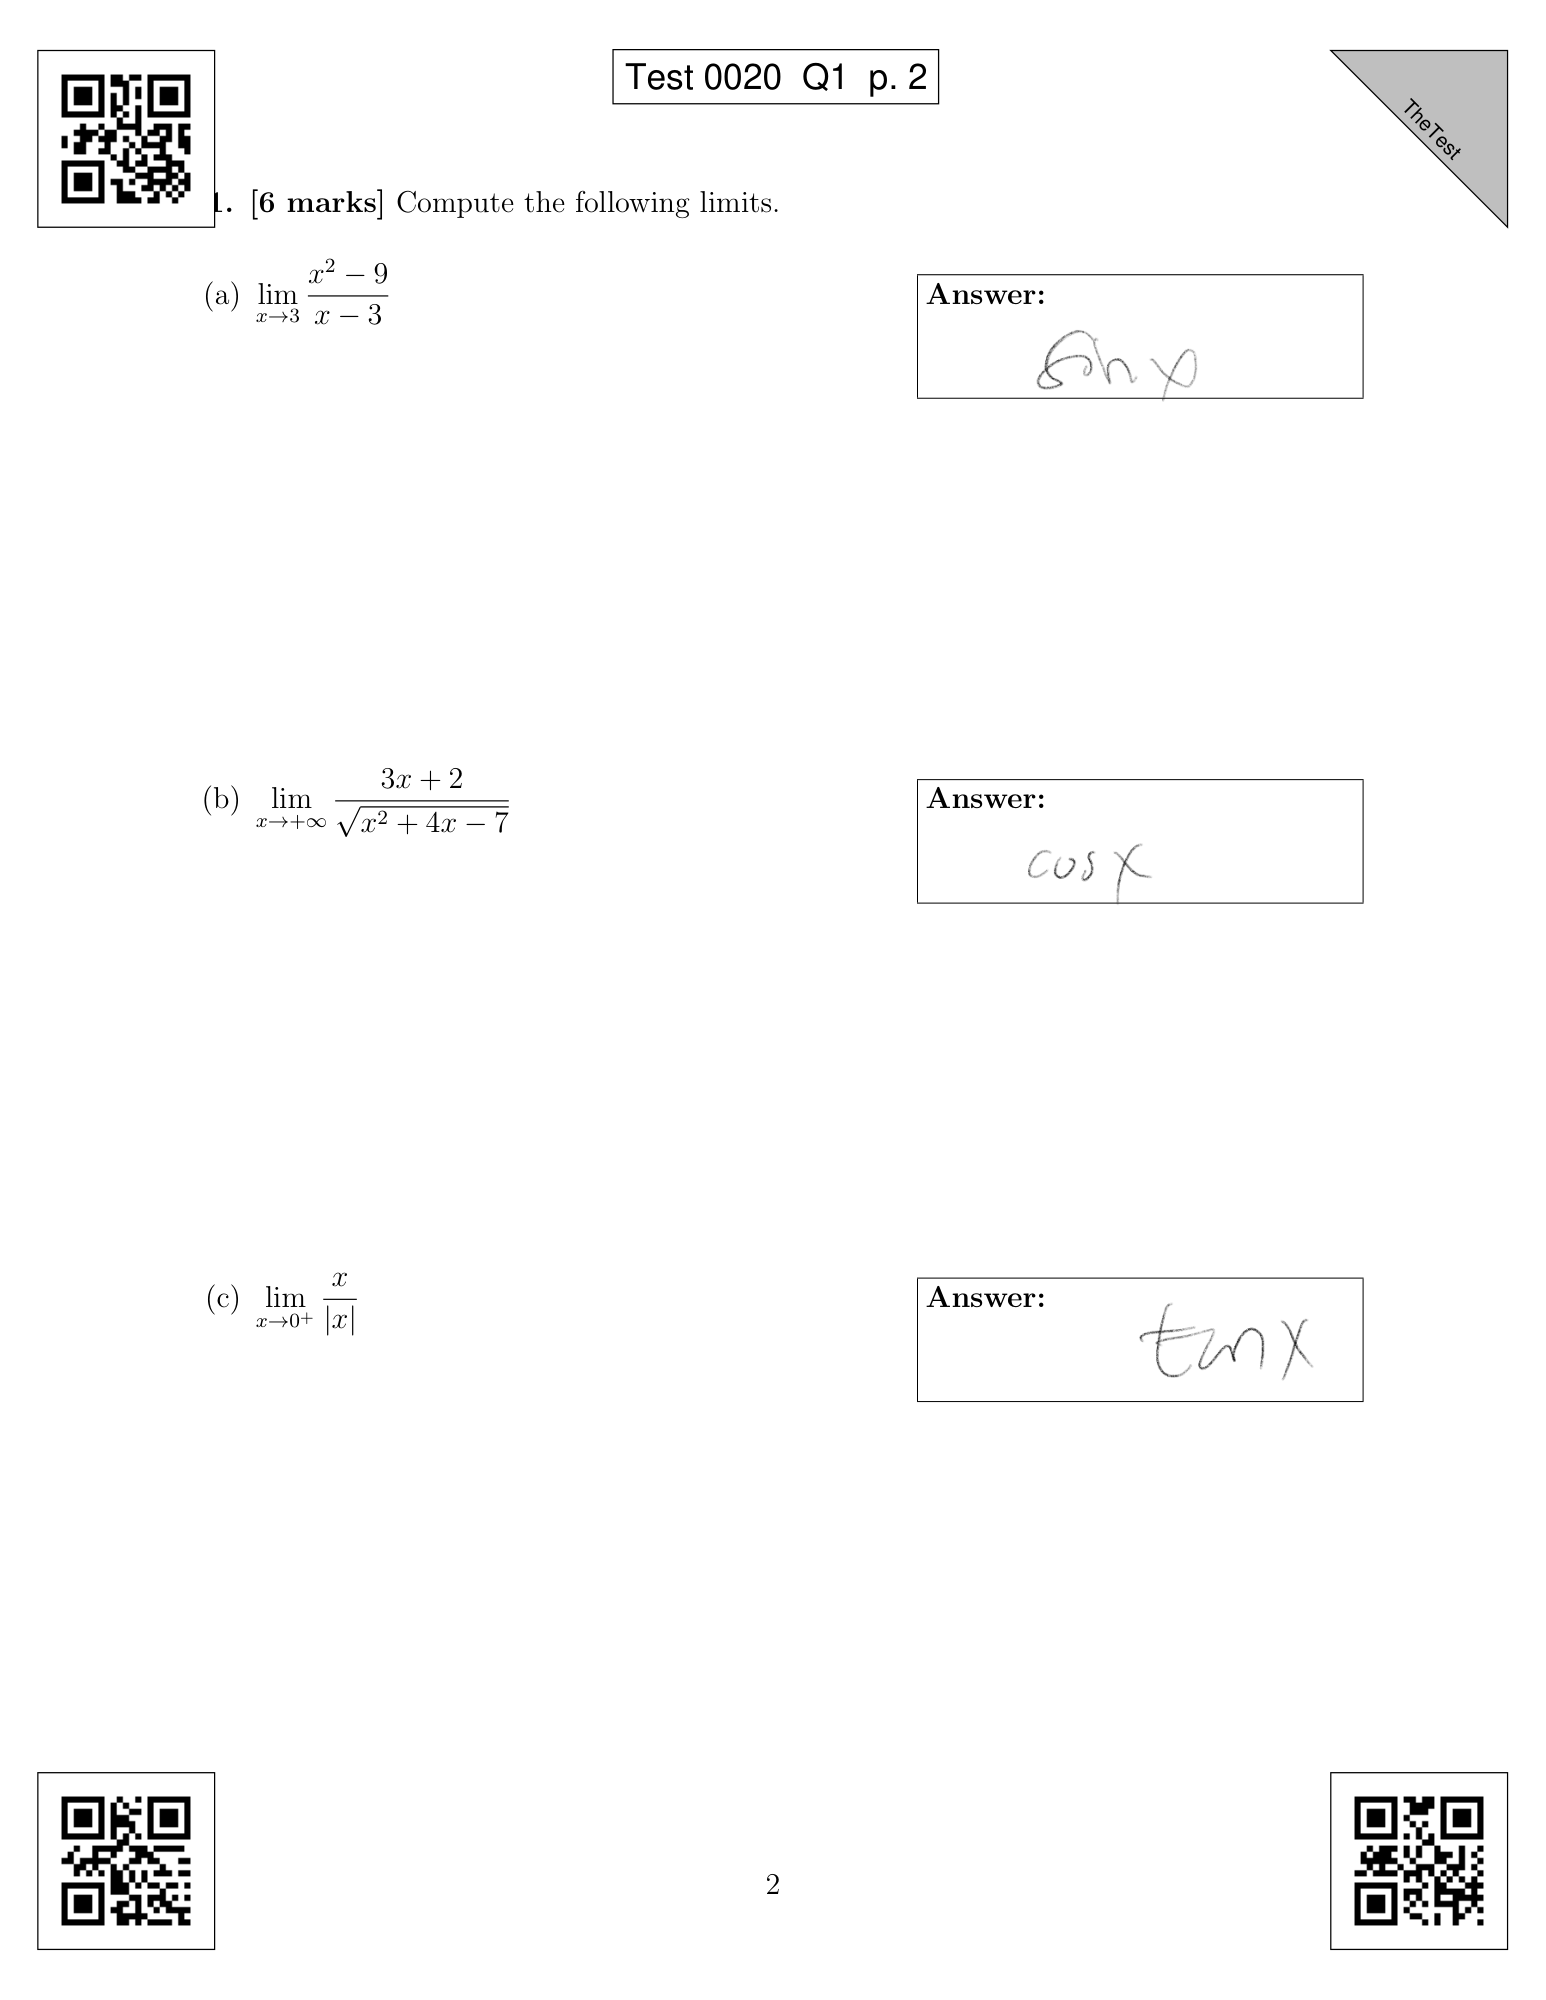 Test 0020 Q1 p. 2
TheTest
1. [6 marks] Compute the following limits.
(a) lim x→3 x² − 9 / x − 3
Answer:
sin x
(b) lim x→+∞ 3x + 2 / √x² + 4x − 7
Answer:
cos x
(c) lim x→0⁺ x / |x|
Answer:
tan x
2